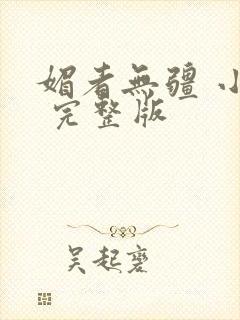 媚者無疆 小
完整版
吴起褒